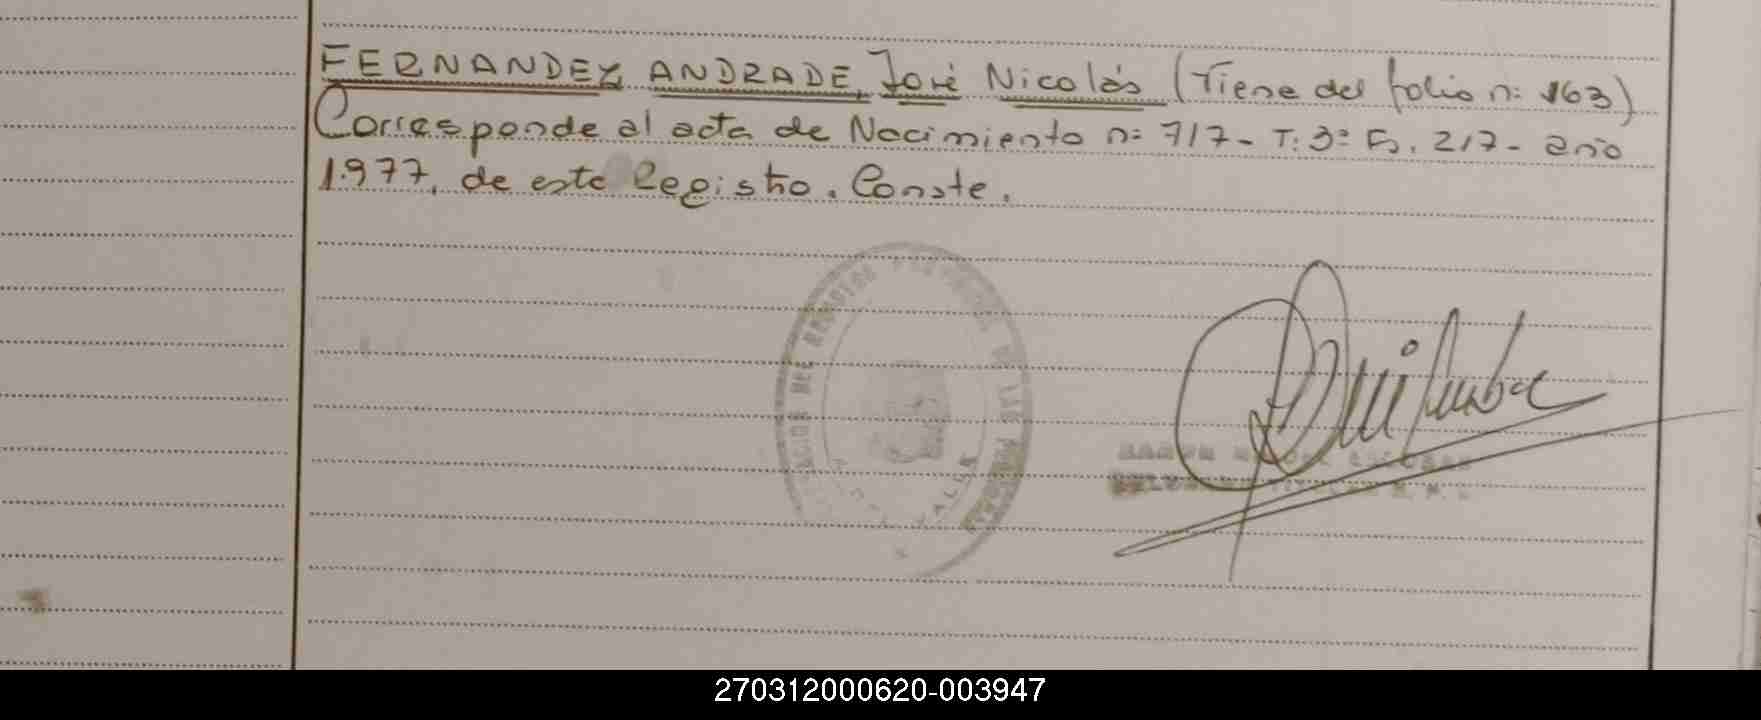 FERNANDEZ ANDRADE, José Nicolás (Tiene del folio n: 163)
Corresponde al acta de Nacimiento n: 717- T: 3: Fs. 217- año
1.977, de este Registro. Conste.
DEL REGISTRO
DE LAS
VALLE
270312000620-003947